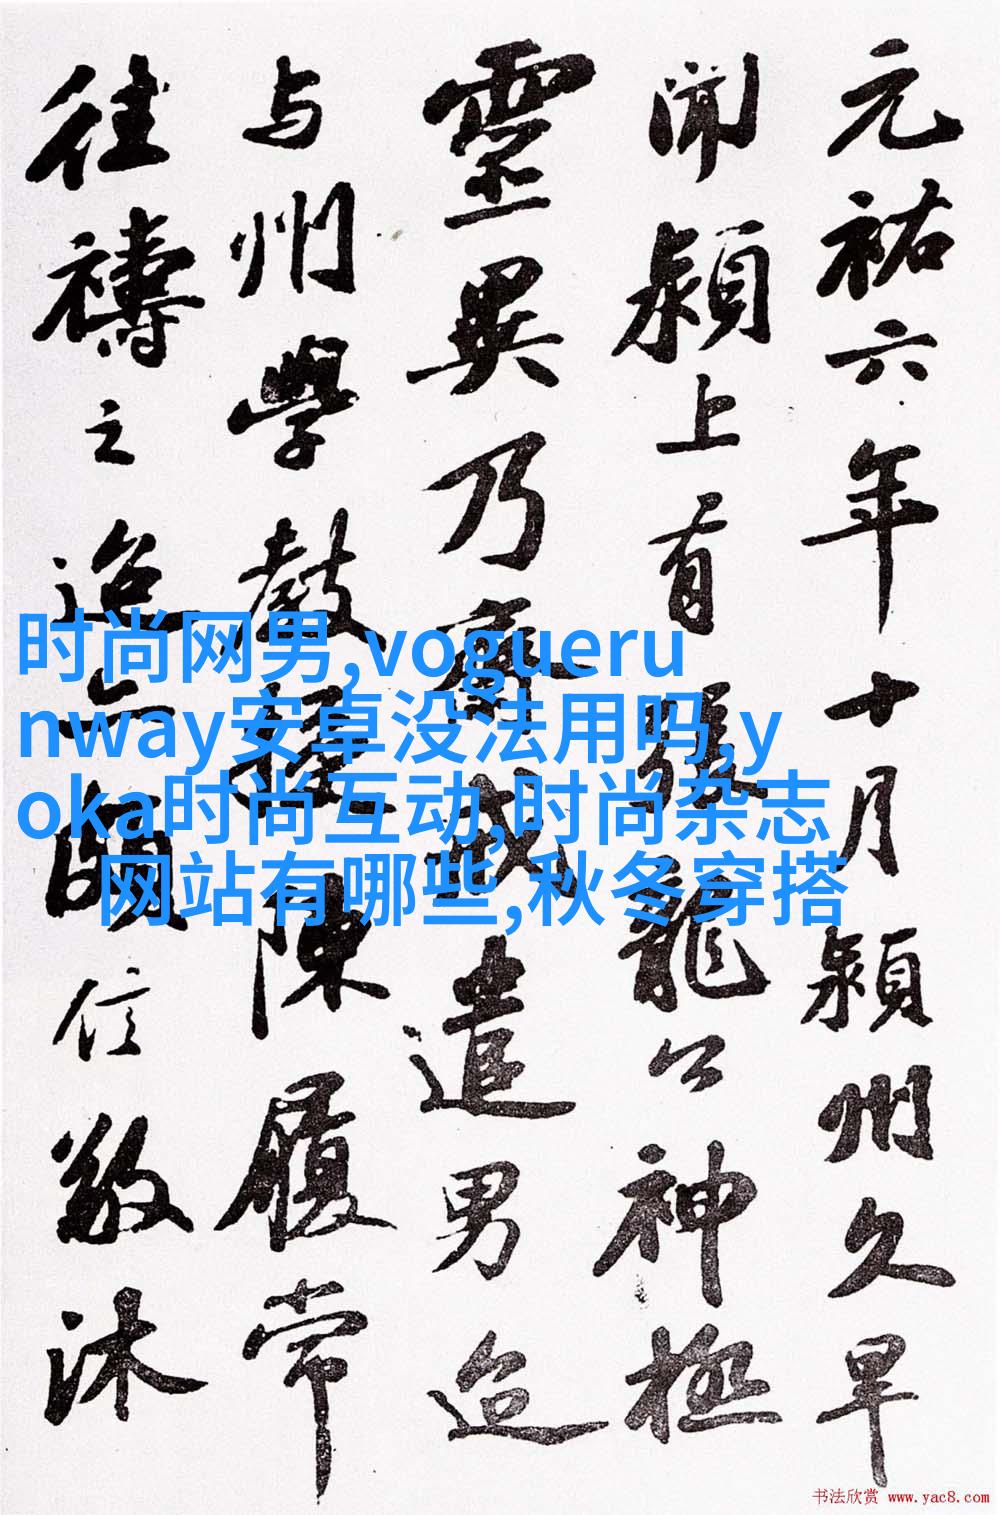 元祐六年十月颍州久旱
闻颍上有张龙公神极
靈異乃齋戒遣男迨
与州學教授陳履常
往禱之迨亦頗信敬沐
时尚网男,vogueru
nway安卓没法用吗,y
oka时尚互动,时尚杂志
网站有哪些,秋冬穿搭
书法欣赏 www.yac8.com